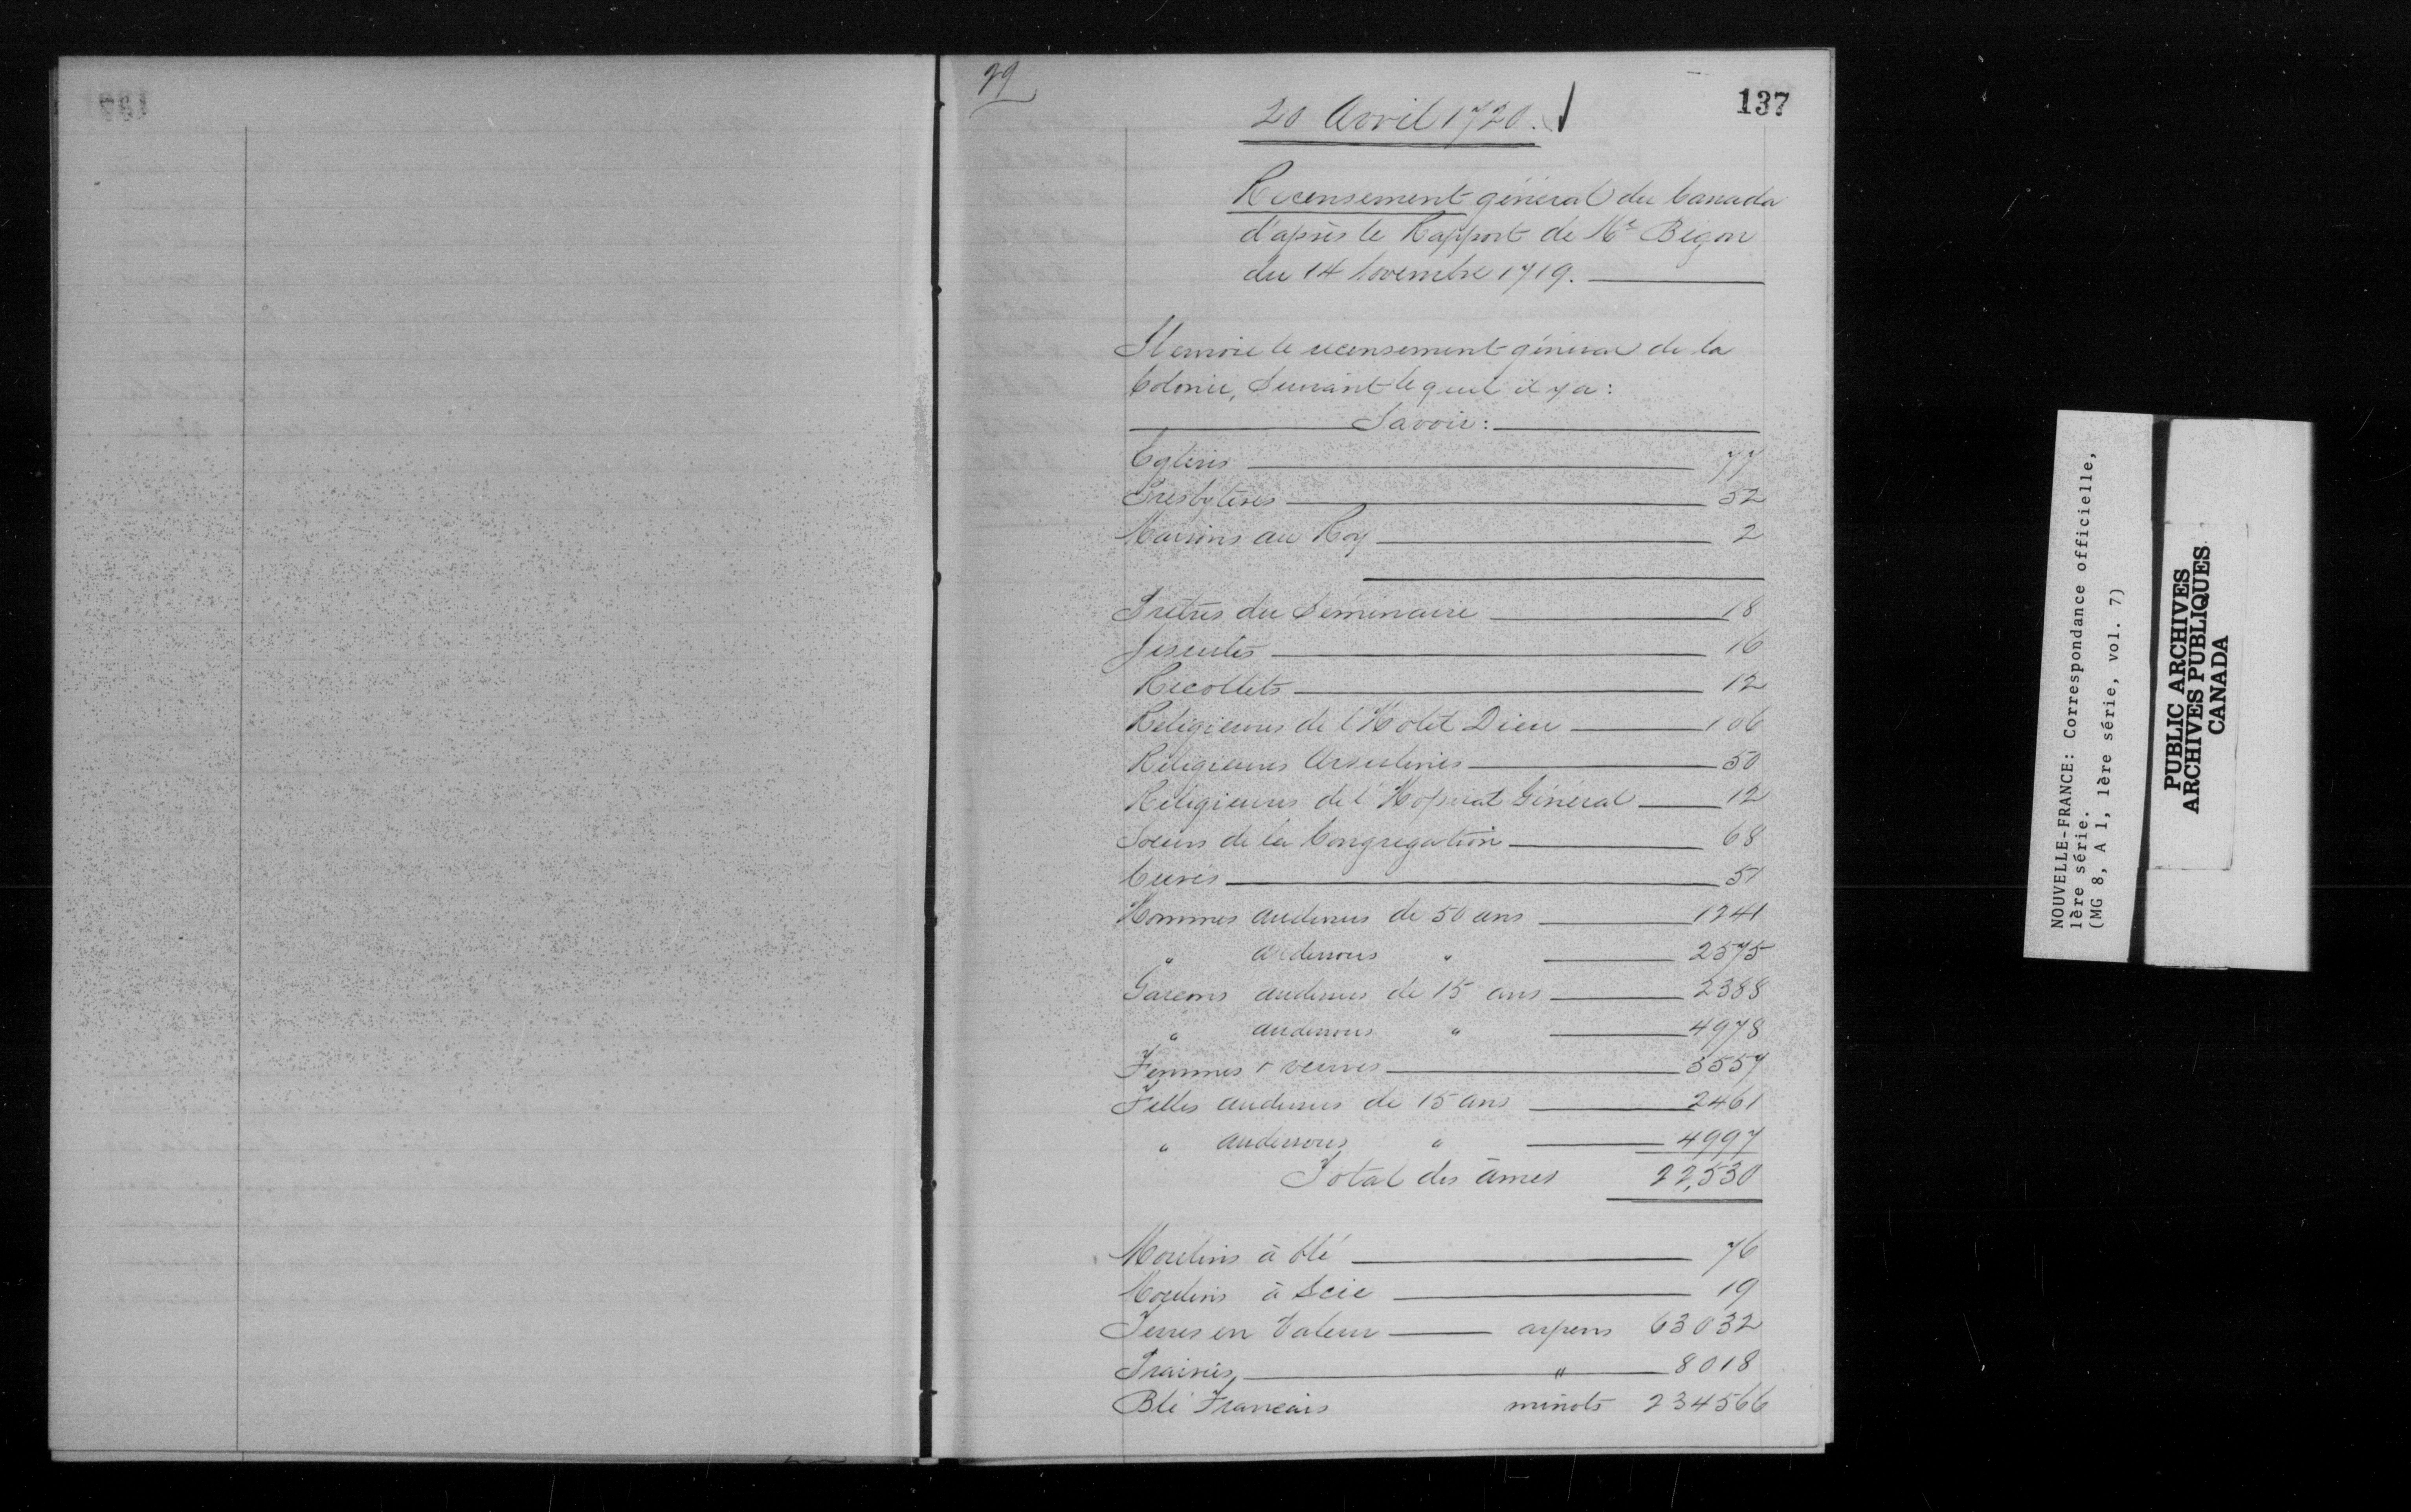 29
137
20 Avril 1720.
Recensement général du Canada
d'après le Rapport de Mr Bégon
du 14 Novembre 1719.
Il envoie le recensement général de la
Colonie, Suivant lequel il y a:
Savoir:
Eglises 77
Presbytères 52
Maisons au Roy 2
Prêtres du Séminaire 18
Jésuites 16
Récollets 12
Religieuses de l'Hotel Dieu 106
Religieuses Ursulines 50
Religieuses de l'Hopital Général 12
Soeurs de la Congregation 68
Curés 51
Hommes audessus de 50 ans 1241
" audessous " 2575
Garcons audessus de 15 ans 2388
" audessous " 4978
Femmes & veuves 3557
Filles audessus de 15 ans 2461
" audessous " 4997
Total des âmes 22,530
Moulins à blé 76
Moulins à Scie 19
Terres en Valeur arpens 63032
Prairies, " 8018
Blé Francais minots 234566
NOUVELLE-FRANCE: Correspondance officielle,
1ère série.
(MG 8, A 1, 1ère série, vol. 7)
PUBLIC ARCHIVES
ARCHIVES PUBLIQUES
CANADA